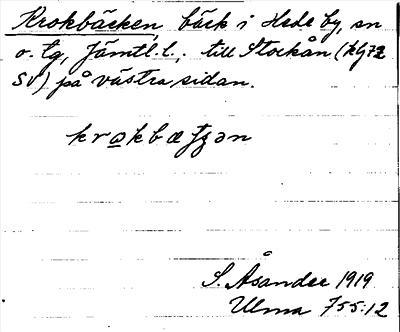 Krokbäcken, bäck i Hede by, sn
o. tg, Jämtl. l., till Stockån (kbl 72
SV) på västra sidan.
krokbætȷən
S. Åsander 1919
Ulma 755:12